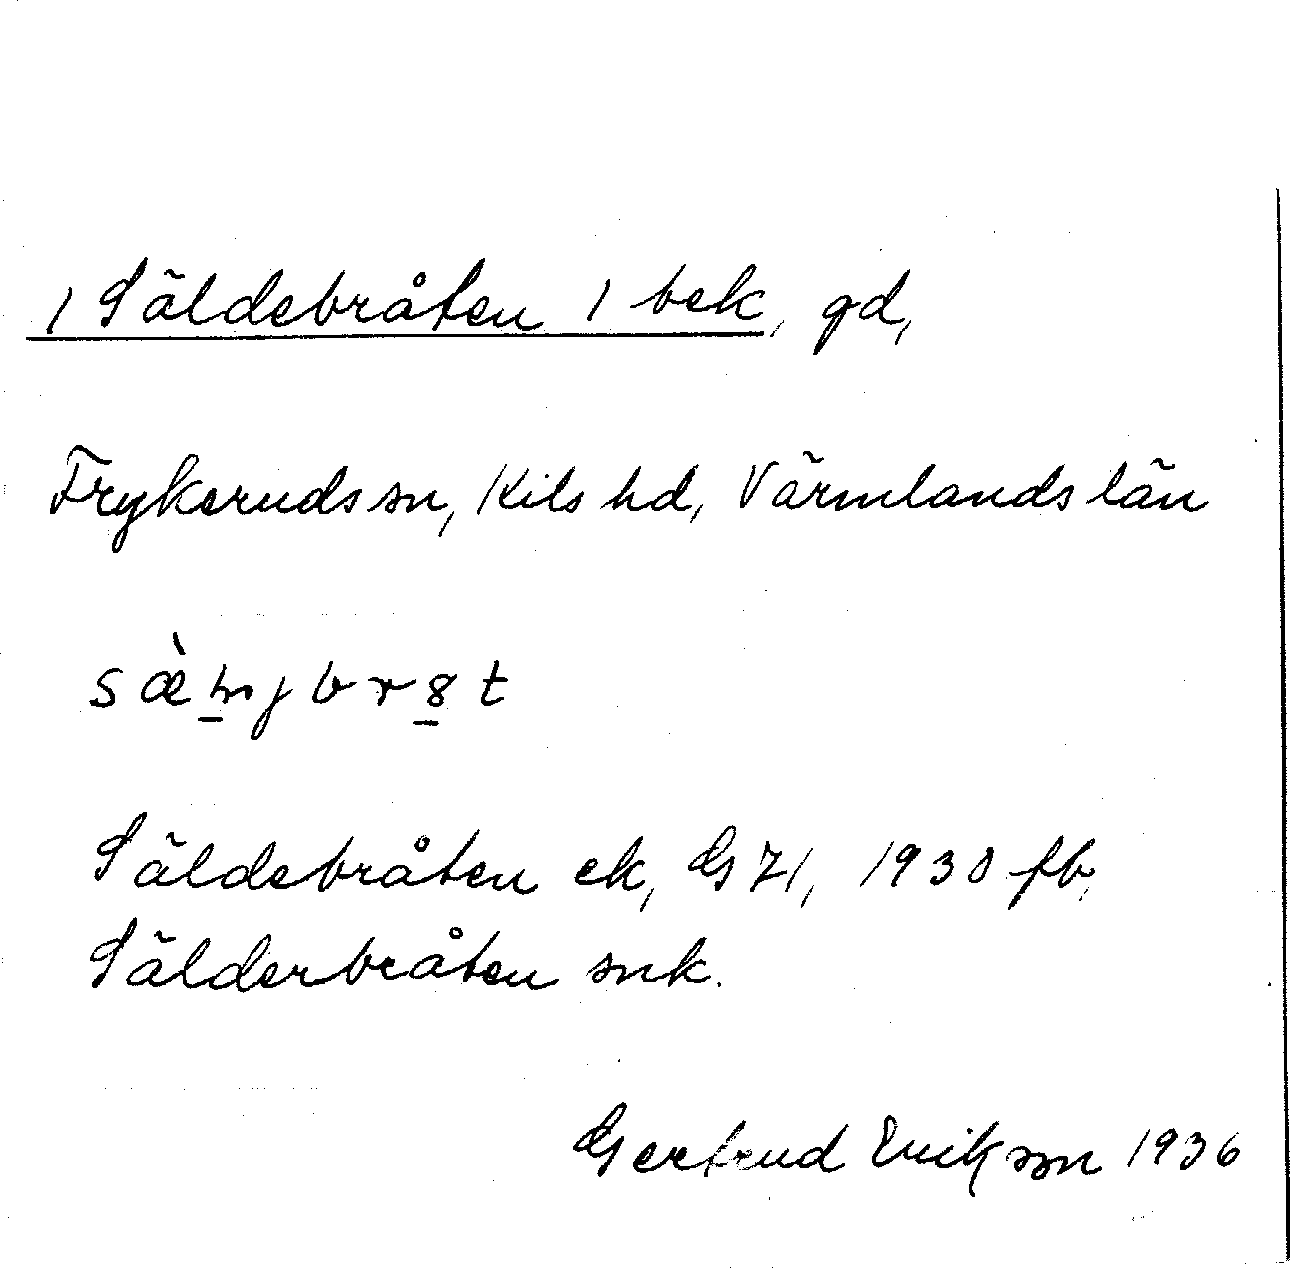 1 Säldebråten 1 bek, gd,
Frykeruds sn, Kils hd, Värmlands län
Säldebråten ek, GS 71, 1930 fb,
Sälderbråten snk.
Gertrud Erikson 1936